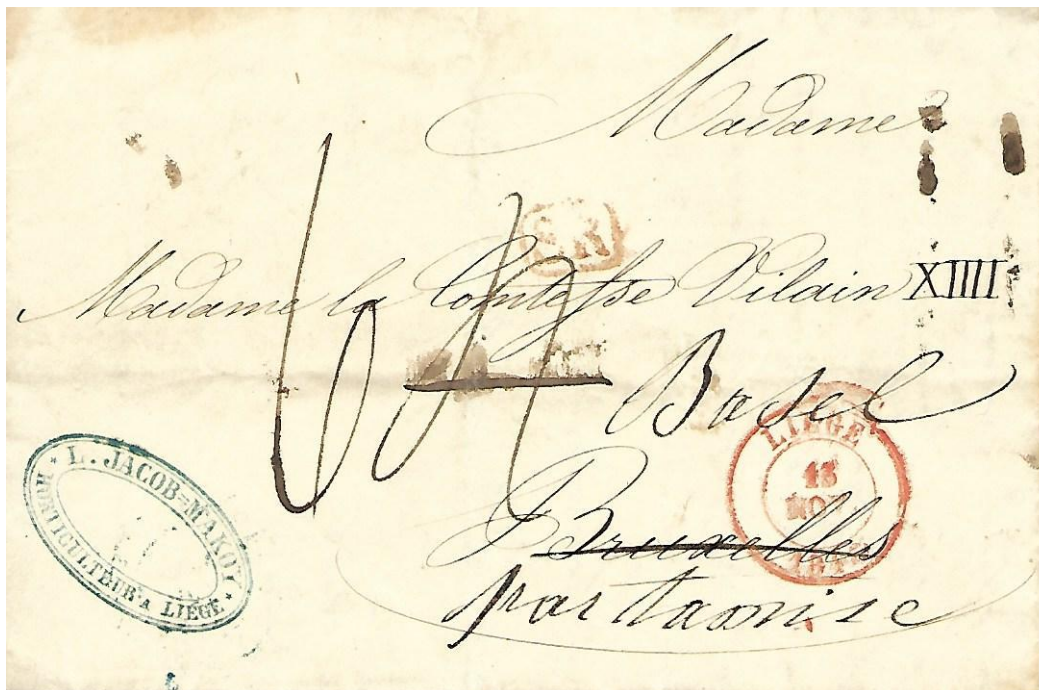 Madame
SR
Madame la Comtesse Vilain XIIII
Basel
LIEGE
Bruxelles
par tamise
L. JACOB-MAKOY
HORTICULTEUR A LIEGE